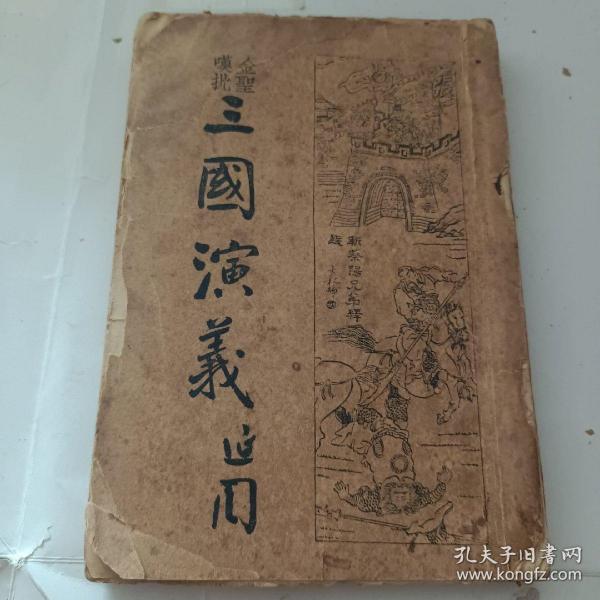 金聖
嘆批
三國演義
斬蔡陽兄弟釋
疑
孔夫子旧书网
www.kongfz.com